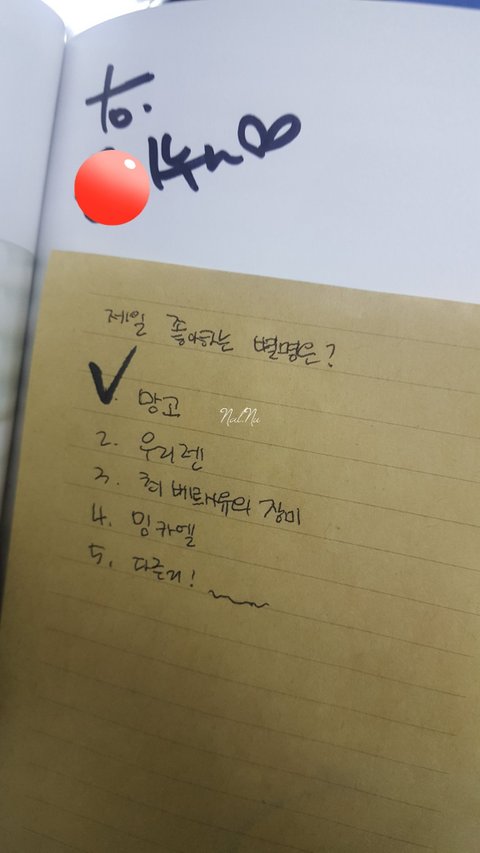 to.
제일 좋아하는 별명은?
망고
NaLNu
2. 우리렌
3. 최 베르사유의 장미
4. 밍카엘
5. 다른거!